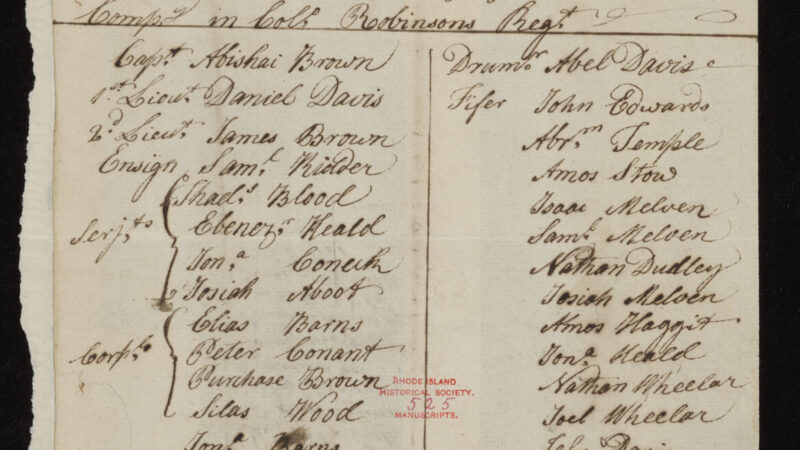 Compy in Colo Robinsons Regt
Capt Abishai Brown
1st Lieut Daniel Davis
2d Lieut James Brown
Ensign Saml Kidder
Serjts
Thads Blood
Ebenezr Heald
Jona
Josiah Aboot
Corpls
Elias Barns
Peter Conant
Purchase Brown
Silas Wood
Jona Barns
Drumr Abel Davis
Fifer John Edwards
Abrm Temple
Amos Stow
Isaac Melven
Saml Melven
Nathan Dudley
Josiah Melven
Amos Haggit
Jona Heald
Nathan Wheelar
Joel Wheelar
RHODE ISLAND
HISTORICAL SOCIETY.
525
MANUSCRIPTS.